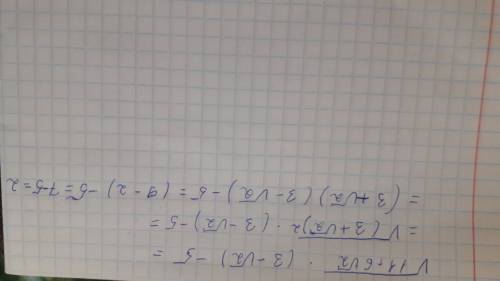 √11+6√2 · (3-√2) -5 =
= √(3+√2)2 · (3-√2)-5 =
= (3+√2)(3-√2)-5 = (9-2)-5=7-5=2